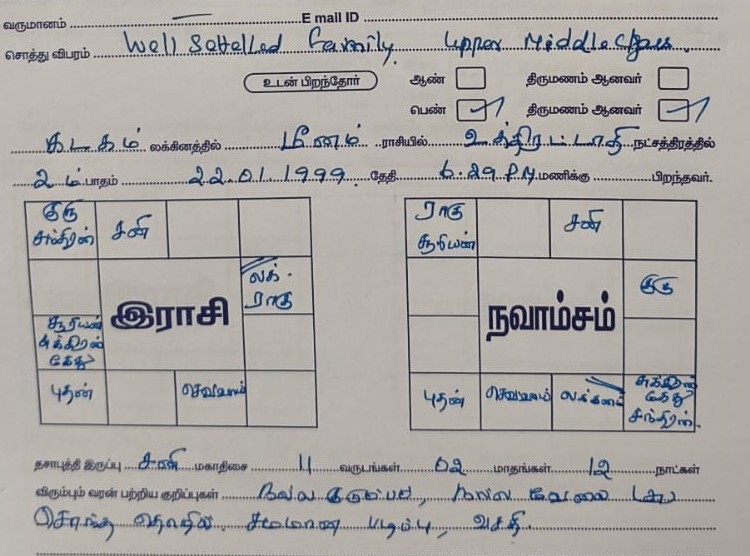 வருமானம் E mail ID
சொத்து விபரம் Well Settelled Family. Upper Middle Class.
உடன் பிறந்தோர் ஆண் திருமணம் ஆனவர்
பெண் திருமணம் ஆனவர்
கடகம் லக்கினத்தில் மீனம் ராசியில் உத்திரட்டாதி நட்சத்திரத்தில்
2 ம் பாதம் 22.01.1999. தேதி 6.29 P.M மணிக்கு பிறந்தவர்.
குரு சந்திரன் சனி
லக். ராகு
இராசி
சூரியன் சுக்கிரன் கேது
புதன் செவ்வாய்
ராகு சூரியன் சனி
குரு
நவாம்சம்
புதன் செவ்வாய் லக்னம் சுக்கிரன் கேது சந்திரன்.
தசாபுத்தி இருப்பு சனி மகாதிசை 11 வருடங்கள் 02 மாதங்கள் 12 நாட்கள்
விரும்பும் வரன் பற்றிய குறிப்புகள் நல்ல குடும்பம், நல்ல வேலை
சொந்த தொழில், சமமான படிப்பு, வசதி.